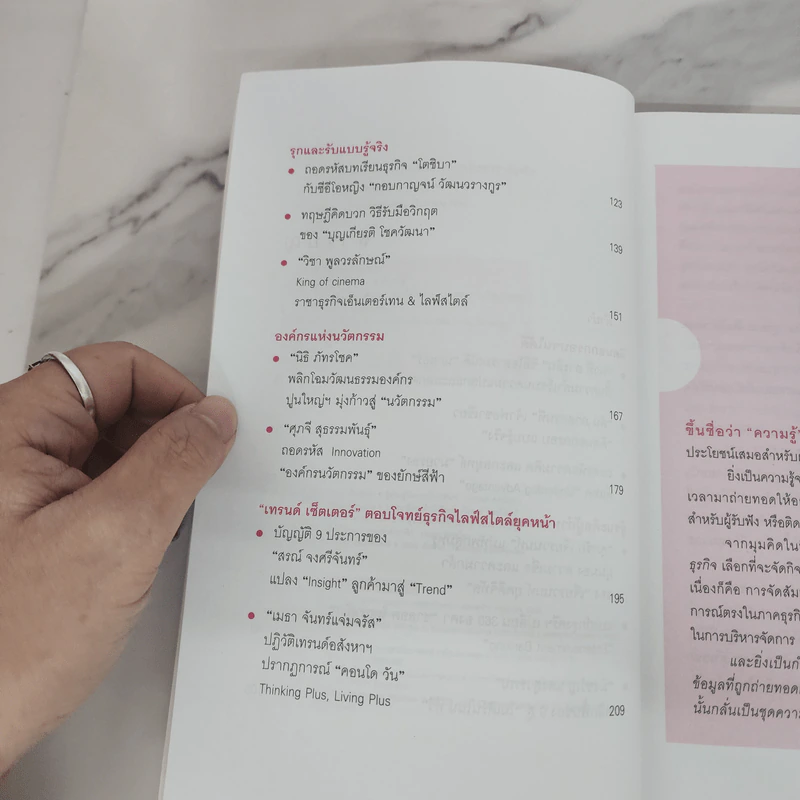 รุกและรับแบบรู้จริง
ถอดรหัสบทเรียนธุรกิจ “โตชิบา”
กับซีอีโอหญิง “กอบกาญจน์ วัฒนวรางกูร”
123
ทฤษฎีคิดบวก วิธีรับมือวิกฤต
ของ “บุญเกียรติ โชควัฒนา”
139
“วิชา พูลวรลักษณ์”
King of cinema
ราชาธุรกิจเอ็นเตอร์เทน & ไลฟ์สไตล์
151
องค์กรแห่งนวัตกรรม
“นิธิ ภัทรโชค”
พลิกโฉมวัฒนธรรมองค์กร
ปูนใหญ่ฯ มุ่งก้าวสู่ “นวัตกรรม”
167
“ศุภจี สุธรรมพันธุ์”
ถอดรหัส Innovation
“องค์กรนวัตกรรม” ของยักษ์สีฟ้า
179
“เทรนด์ เซ็ตเตอร์” ตอบโจทย์ธุรกิจไลฟ์สไตล์ยุคหน้า
บัญญัติ 9 ประการของ
“สรณ์ จงศรีจันทร์”
แปลง “Insight” ลูกค้ามาสู่ “Trend”
195
“เมธา จันทร์แจ่มจรัส”
ปฏิวัติเทรนด์อสังหาฯ
ปรากฏการณ์ “คอนโด วัน”
Thinking Plus, Living Plus
209
ขึ้นชื่อว่า “ความรู้”
ประโยชน์เสมอสำหรับ
ยิ่งเป็นความรู้
เวลามาถ่ายทอดให้
สำหรับผู้รับฟัง หรือ
จากมุมคิดใน
ธุรกิจ เลือกที่จะจัด
เนื่องก็คือ การจัด
การณ์ตรงในภาคธุรกิ
ในการบริหารจัดการ
และยิ่งเป็น
ข้อมูลที่ถูกถ่ายทอด
นั้นกลั่นเป็นชุด